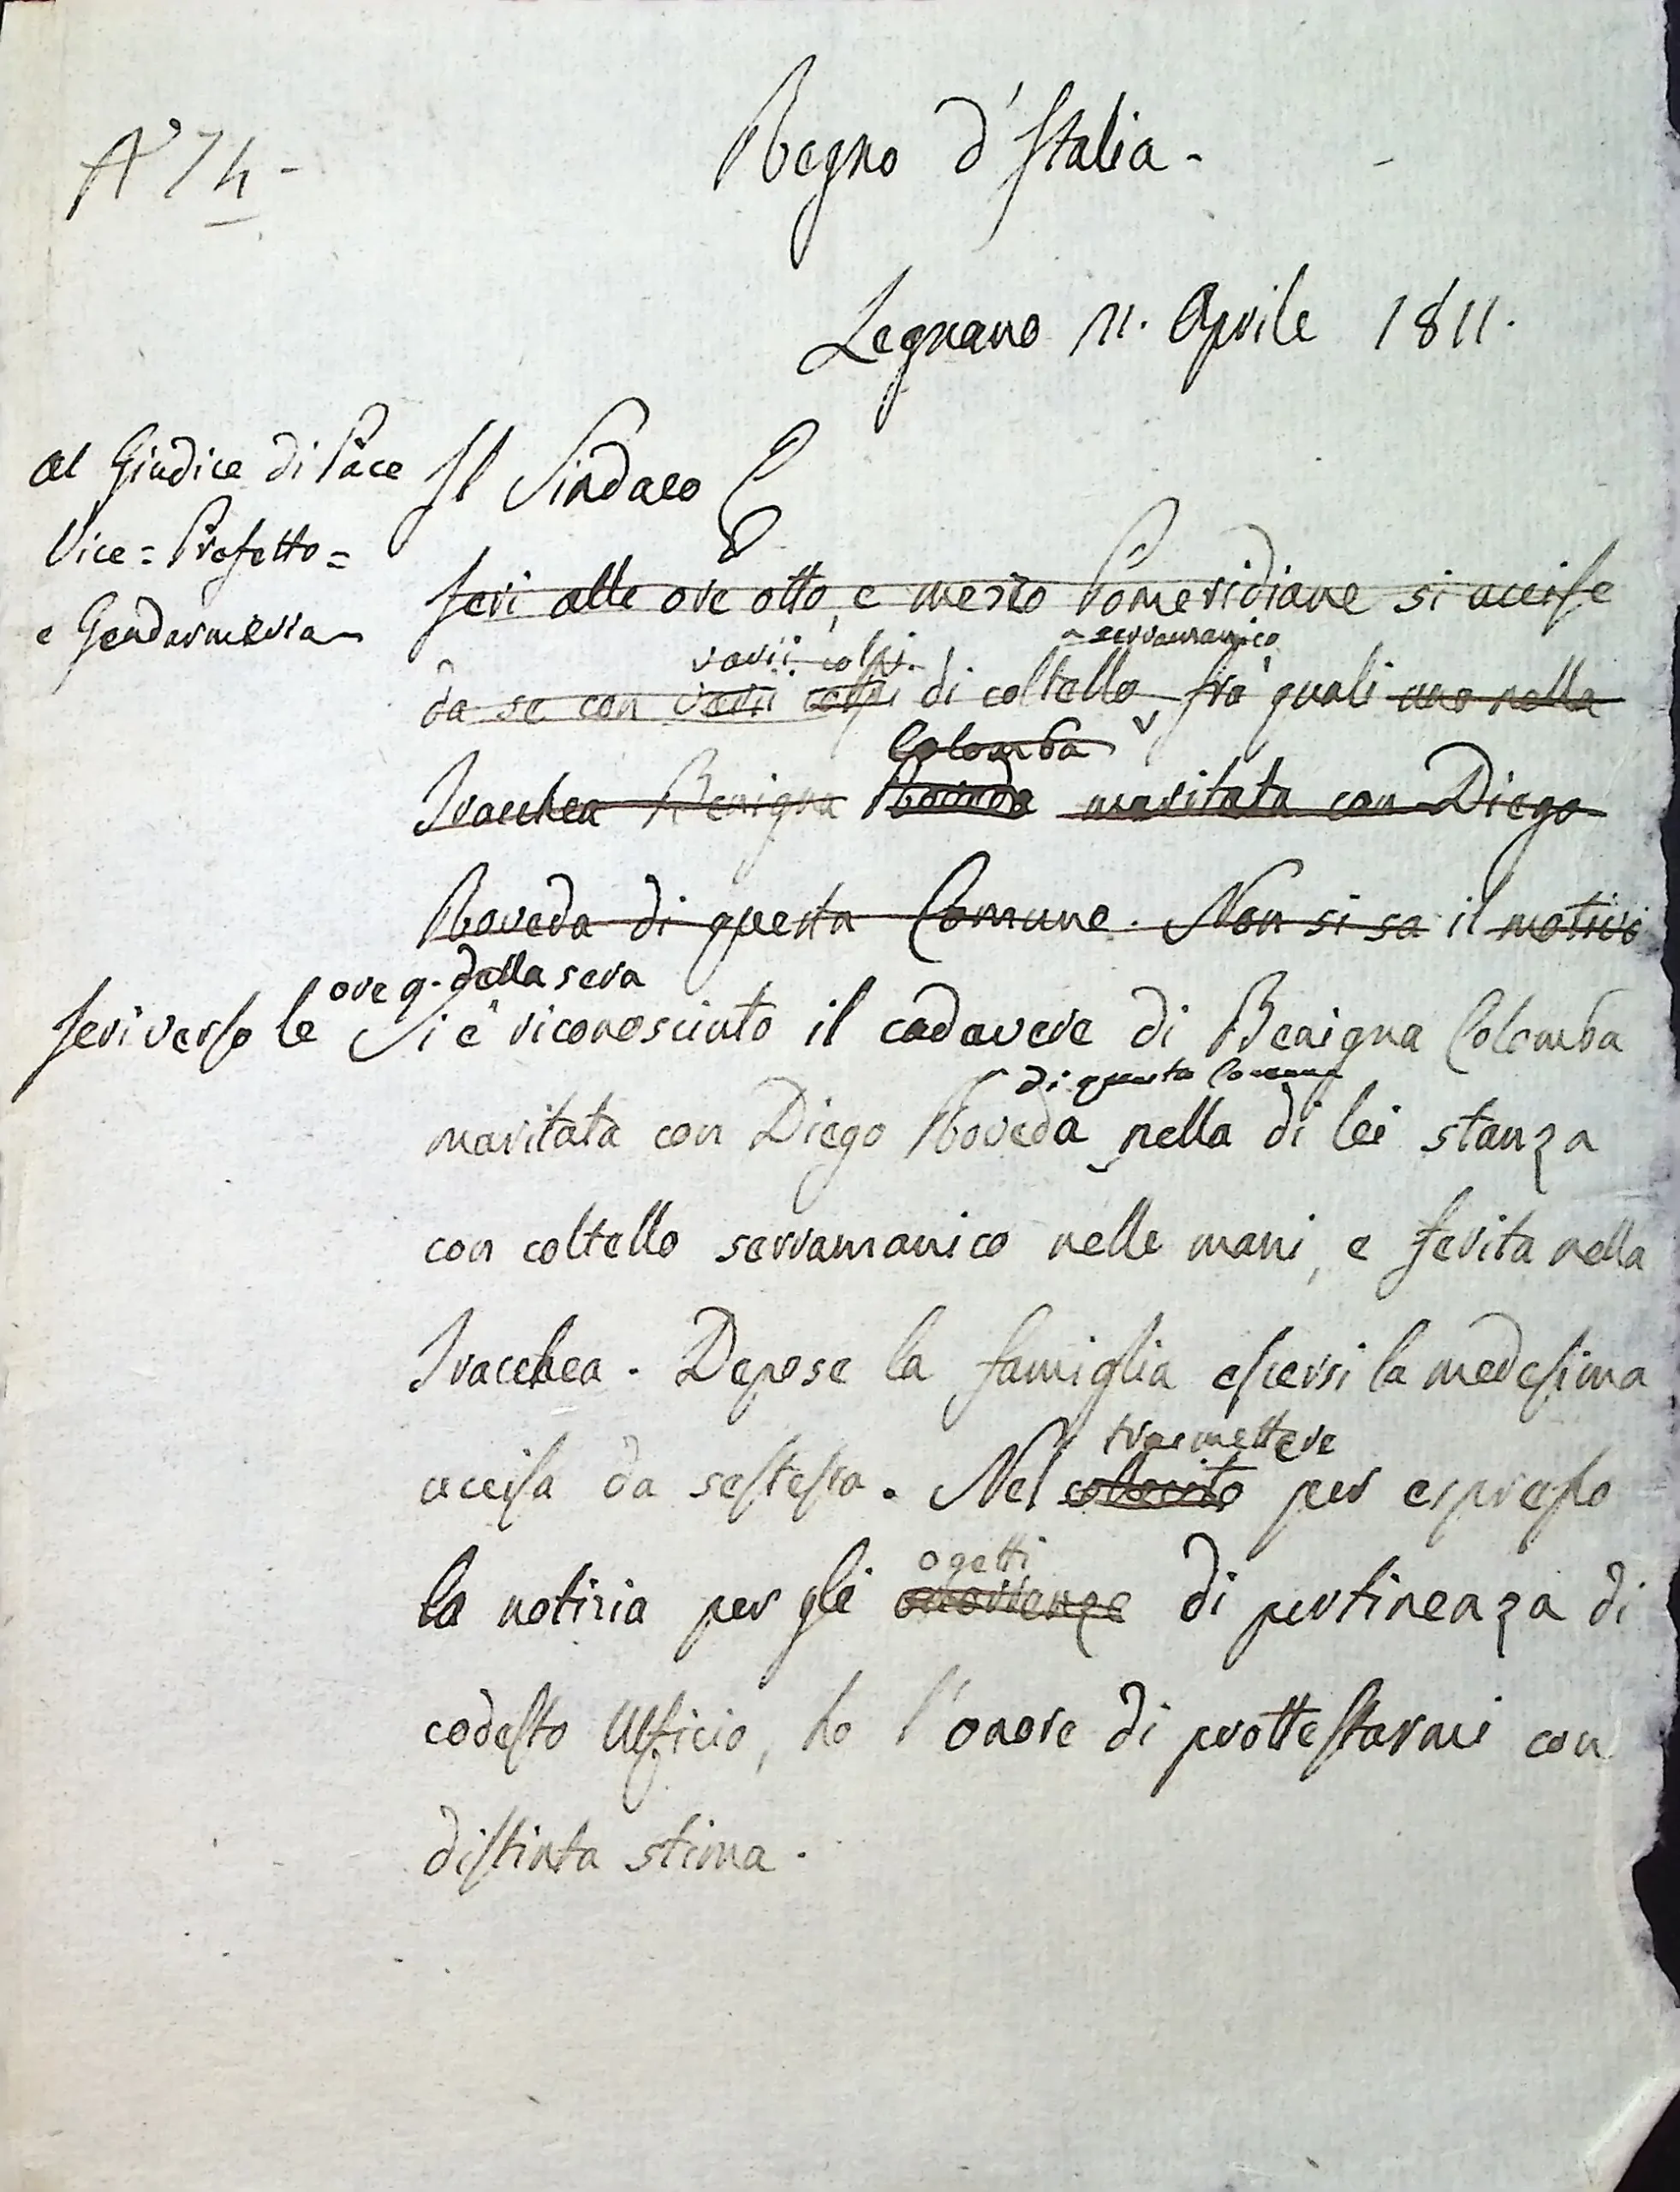 N° 74-
Regno d'Italia.
Legnano 11. Aprile 1811.
Al Giudice di Pace
Vice = Prefetto =
e Gendarmeria
Il Sindaco
Jeri alle ore otto, e mezzo Pomeridiane si uccise
varii colpi. serramanico
da se con varii colpi di coltello, frà quali uno nella
Colomba
Trachea Benigna Roveda maritata con Diego
Roveda di questa Comune. Non si sa il motivo
ore 9. della sera
Jeri verso le Si è riconosciuto il cadavere di Benigna Colomba
di questa Comune
maritata con Diego Roveda nella di lei stanza
con coltello serramanico nelle mani, e ferita nella
Tracchea. Depose la famiglia essersi la medesima
uccisa da sestessa. Nel
trasmettere
per espresso
ogetti
la notizia per gli occorrenze di pertinenza di
codesto Ufficio, ho l'onore di prottestarmi con
distinta stima.